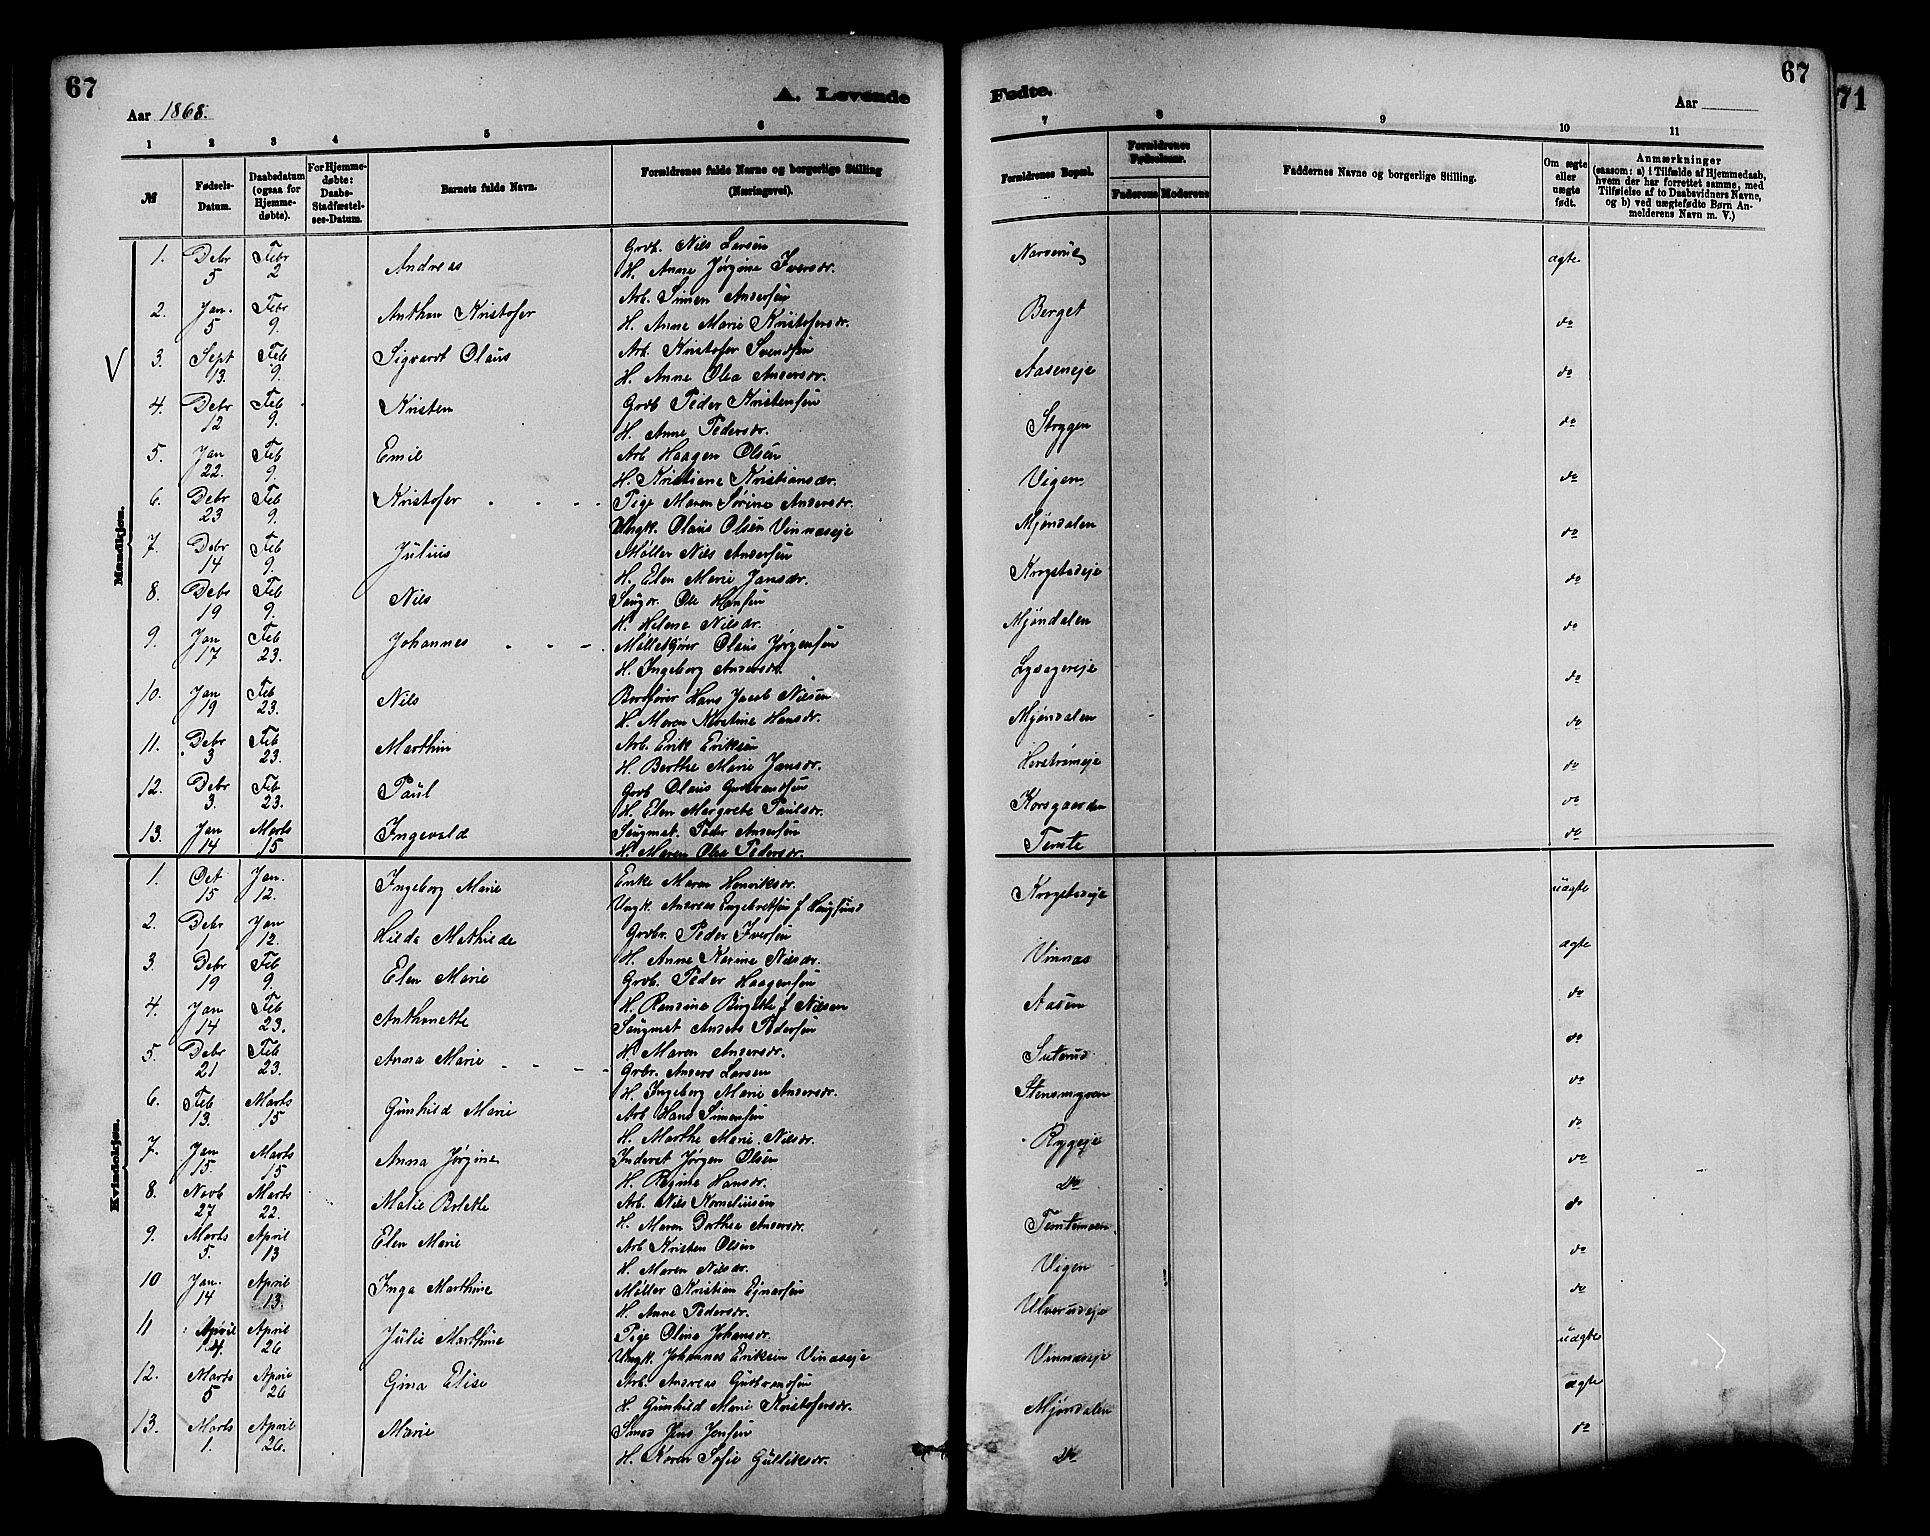 67
Aar 1868.
A. Levende
1 2 3 4 5 6
№
Fødsels-Datum.
Daabsdatum (ogsaa for Hjemmedøbte).
For Hjemmedøbte: Daabs-Stadfæstelses-Datum.
Barnets fulde Navn.
Forældrenes fulde Navne og borgerlige Stilling (Næringsvei).
Mandkjøn.
1. Debr 5 Febr 2 Andreas Grdb. Nils Larsen
H. Anne Jørgine Iversdr.
2. Jan. 5 Febr 9. Anthon Kristofer Arb. Simen Andersen
H. Anne Marie Kristofersdr.
V 3. Sept 13. Feb 9. Sigvardt Olaus Arb. Kristofer Svendsen
H. Anne Olea Andersdr.
4. Debr 12 Feb 9. Kristen Grdb Peder Kristensen
H. Anne Pedersdr.
5. Jan 22. Feb 9. Emil Arb Haagen Olsen
H. Kristiene Kristiansdr.
6. Debr 23 Feb 9. Kristofer Pige Maren Sørine Andersdr.
Ungk. Olaus Olsen Vinnaseje
7. Debr 14 Feb 9. Julius Møller Nils Andersen
H. Elen Marie Jansdr.
8. Debr 19 Feb 9. Nils Ole Hansen
H. Helene Nilsdr.
9. Jan 17 Feb 23. Johannes Olaus Jørgensen
H. Ingeborg Andersdr.
10. Jan 19 Feb 23. Nils Hans Jacob Nilsen
H. Maren Kirstine Hansdr.
11. Debr 3 Feb 23. Marthin Arb. Erik Eriksen
H. Berthe Marie Jansdr.
12. Debr 3. Feb 23. Paul Grdb Olaus Gudbrandsen
H. Elen Margrete Paulsdr.
13. Jan 14 Marts 15 Ingevald Saugmst. Peder Andersen
H. Maren Olea Pedersdr.
Kvindekjøn.
1. Oct 15 Jan. 12. Ingeborg Marie Enke Maren Henriksdr.
Ungk. Andreas Engebretsen f Haugsund
2. Debr 1 Jan 12. Hilda Mathilde Grdbr. Peder Iversen
H. Anne Karine Nilsdr.
3. Debr 19 Feb 9. Elen Marie Grdb. Peder Haagensen
H. Randine Birgitte f Nilsen
4. Jan 14 Feb 23. Anthonette Saugmst Anders Pedersen
H. Maren Andersdr.
5. Debr 21 Feb 23. Anna Marie Grbr. Anders Larsen
H. Ingeborg Marie Andersdr.
6. Feb 13. Marts 15 Gunhild Marie Arb Hans Simensen
H. Marthe Marie Nilsdr.
7. Jan 15. Marts 15 Anna Jørgine Inderst Jørgen Olsen
H. Regine Hansdr.
8. Novb 27 Marts 22. Arb. Nils Kornelinsen
H. Maren Dorthea Andersdr.
9. Marts 5. April 13 Elen Marie Arb Kristen Olsen
H. Maren Nilsdr.
10 Jan. 14 April 13. Inga Marthine Møller Kristian Ejnersen
H. Anne Pedersdr.
11 April 4. April 26 Julie Marthine Pige Oline Johansdr.
Ungk. Johannes Eriksen Vinaseje
12. Marts 5 April 26 Gina Elise Arb. Andreas Gudbrandsen
H. Gunhild Marie Kristofersdr.
13. Marts 1. April 26. Marie Smed Jens Jensen
H. Karen Sofie Gulliksdr.
67
71
Fødte.
Aar
7 8 9 10 11
Forældrenes Bopæl.
Forældrenes Fødselsaar.
Faderens Moderens
Faddernes Navne og borgerlige Stilling.
Om ægte eller uægte født.
Anmærkninger
(saasom: a) i Tilfælde af Hjemmedaab, hvem der har forrettet samme, med Tilføielse af to Daabsvidners Navne, og b) ved uægtefødte Børn Anmelderens Navn m. V.)
Narverud ægte
Berget do
Aaseneje do
Strygen do
Vigen do
Mjøndalen do
Krogstadeje do
Mjøndalen do
Lysagereje do
Mjøndalen do
Herstrømeje do
Korsgaarden do
Temte do
Krogstadeje uægte
Vinnas ægte
Aasen do
Suterud do
Stensmyren do
Ryggeje do
Do do
Temtemoen do
Vigen do
Ulverudeje do
Vinnaseje uægte
Mjøndalen ægte
Do do